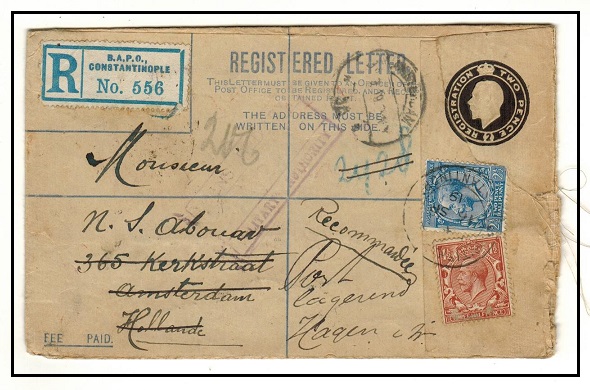 B.A.P.O.,
CONSTANTINOPLE
R
No. 556
REGISTERED LETTER.
THIS LETTER MUST BE GIVEN TO AN OFFICER OF
POST OFFICE TO BE REGISTERED, AND A RECEIPT
OBTAINED FOR IT.
THE ADDRESS MUST BE
WRITTEN ON THIS SIDE.
REGISTRATION TWO PENCE
Monsieur
N. S. Abouav
365 Kerkstraat
Amsterdam
Hollande
Recommandée
Post
lagernd
Hagen i/
FEE PAID.